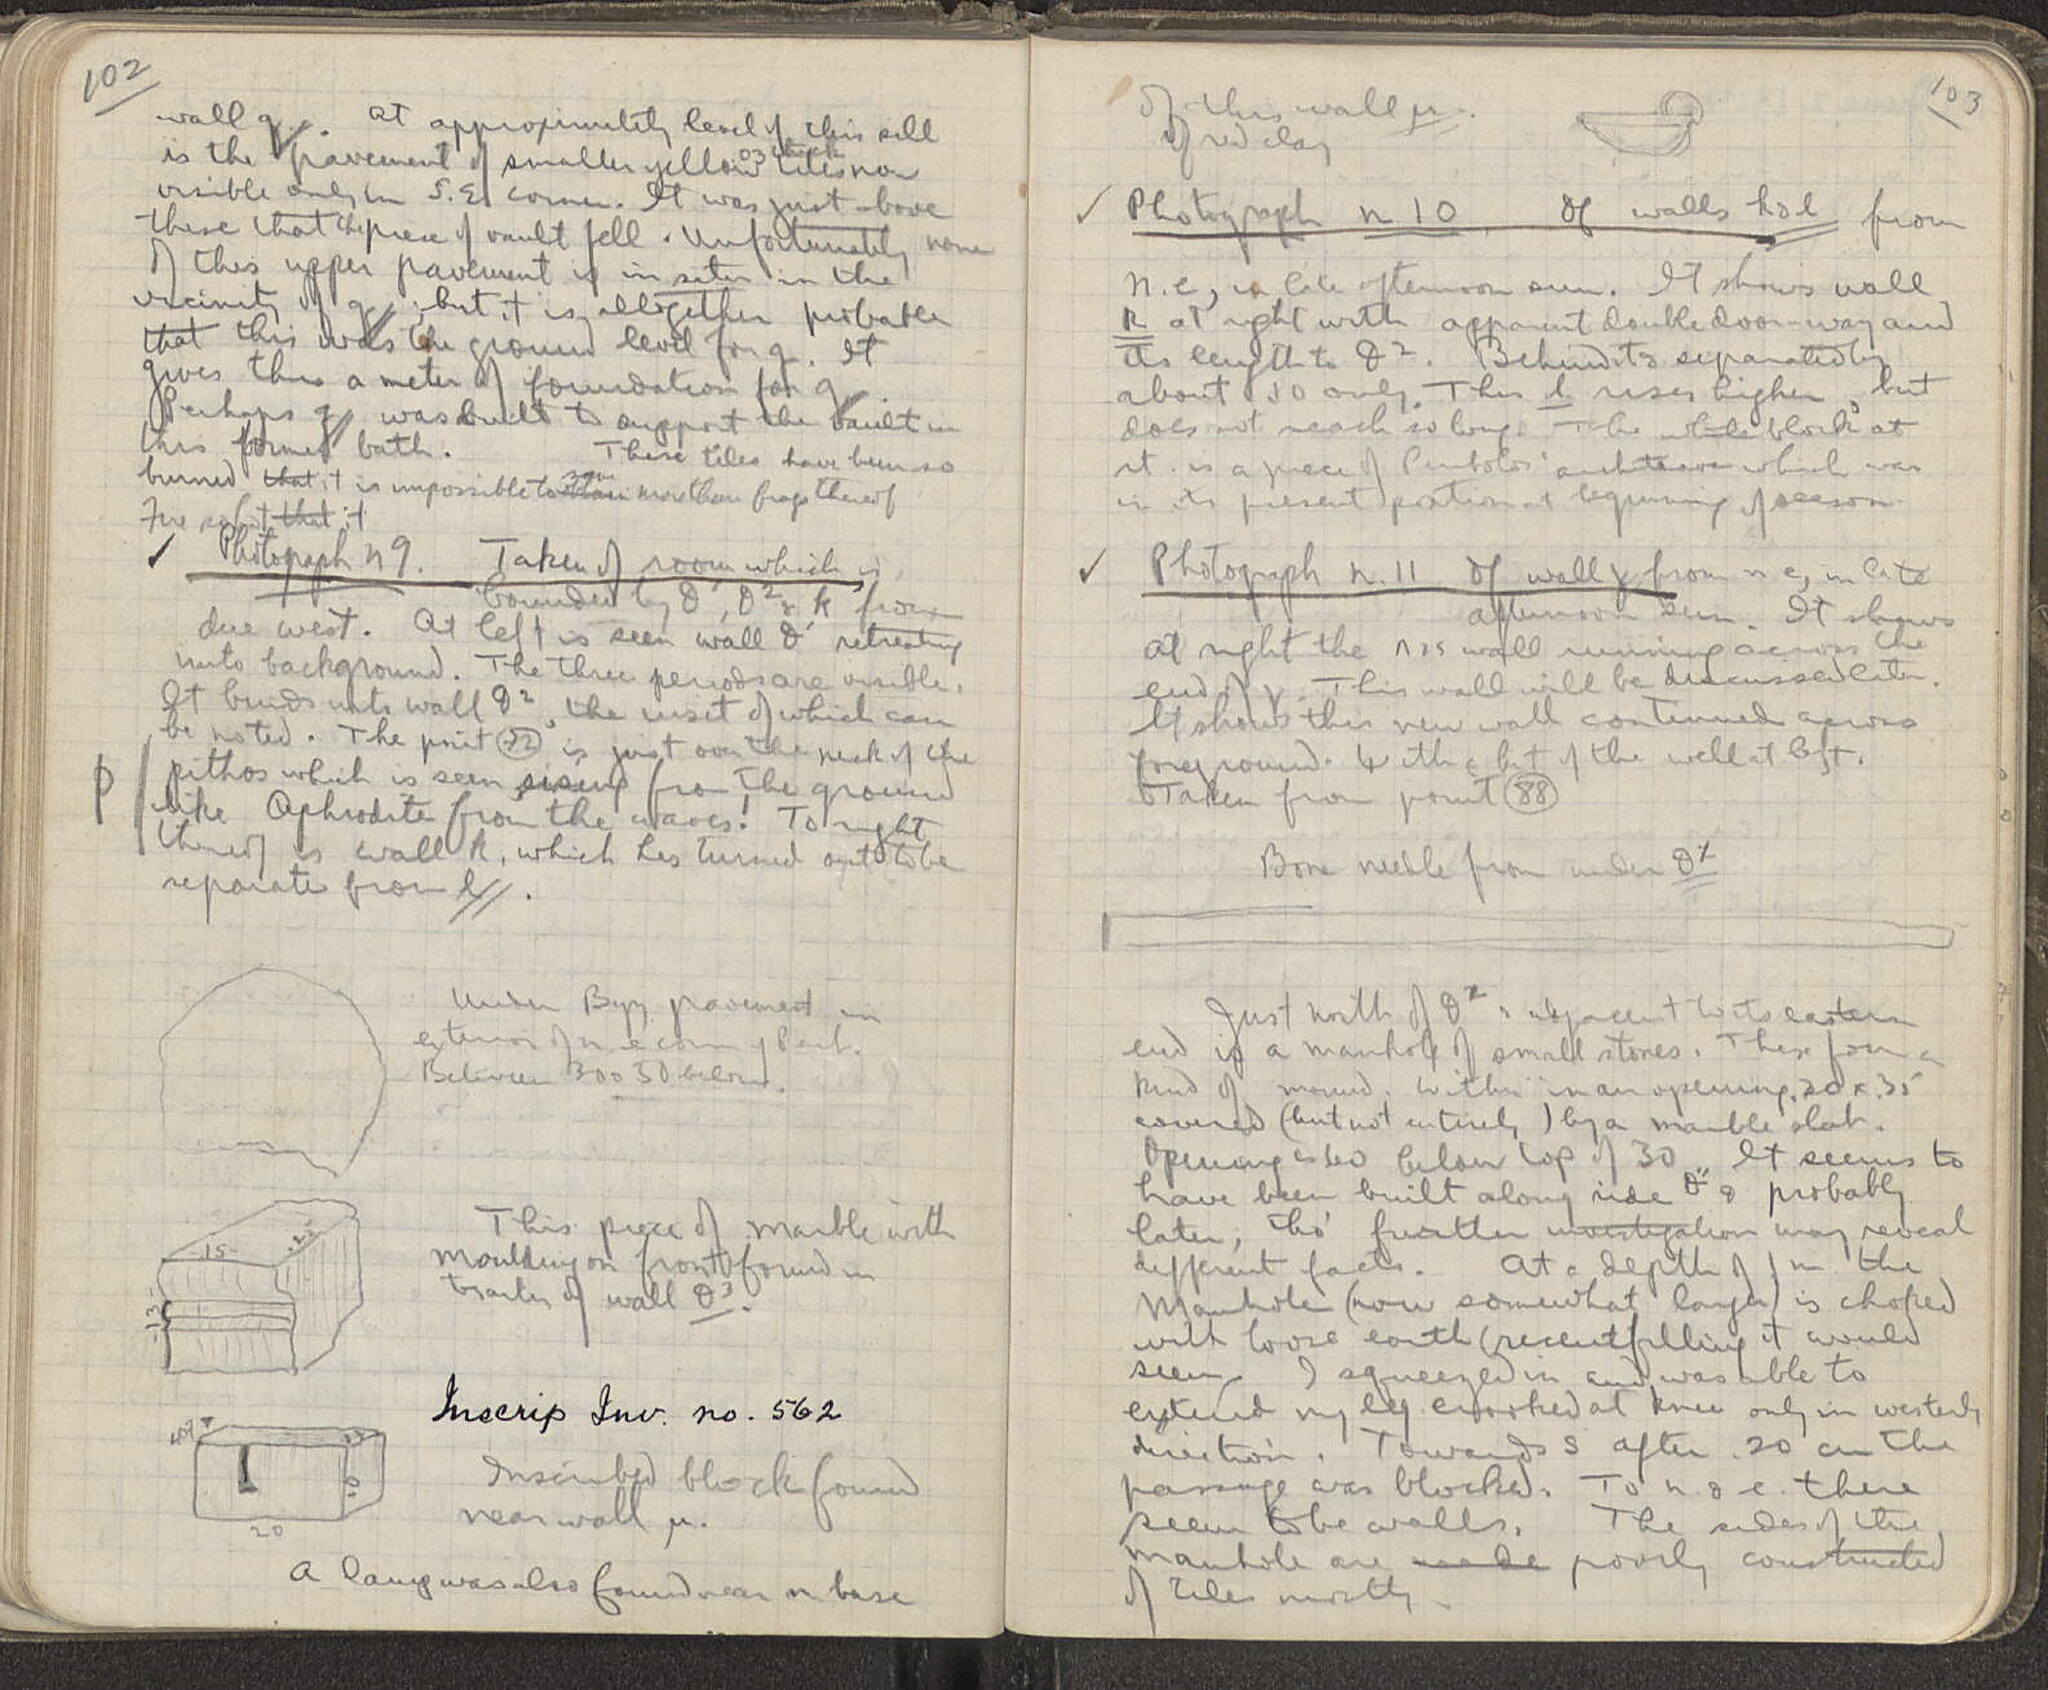 102
wall q. At approximately level of this sill
is the pavement of smaller yellow .03 thick tiles now
visible only in S.E. corner. It was just above
these that the piece of vault fell. Unfortunately none
of this upper pavement is in situ in the
vicinity of q, but it is altogether probable
that this was the ground level for q. It
gives thus a meter of foundation for q.
Perhaps q was built to support the vault in
this former bath. These tiles have been so
burned that it is impossible to save more than frags thereof
that it
✓ Photograph n 9. Taken of room which is
bounded by θ', θ² & k from
due west. At left is seen wall θ' retreating
into background. The three periods are visible.
It binds into wall θ², the inset of which can
be noted. The point 72 is just over the neck of the
pithos which is seen rising from the ground
like Aphrodite from the waves! To right
thereof is wall k, which has turned out to be
separate from l.
Under Byz. pavement in
exterior of n.e. corner of Perib.
Between 30 & 50 below.
This piece of marble with
moulding on front found in
wall θ³.
15
.22
13
Inscrip Inv. no. 562
Inscribed block found
near wall μ.
20
A lamp was also found near n base
103
of this wall μ.
of red clay
✓ Photograph n 10. Of walls k & l from
n.e., in late afternoon sun. It shows wall
k at right with apparent double door-way and
its length to θ². Behind it & separated by
about 10 only. This l rises higher, but
does not reach so long. The white block at
rt. is a piece of Peribolos architrave which was
in its present position at beginning of season.
✓ Photograph n. 11 Of wall γ from n e, in late
afternoon sun. It shows
at right the n & s wall running across the
end of γ. This wall will be discussed later.
It shows this new wall continued across
foreground. With a bit of the well at left.
Taken from point 88
Bone needle from under θˣ
Just north of θˣ & adjacent to its eastern
end is a manhole of small stones. These form a
kind of mound. Within is an opening .20 x .35
covered (but not entirely) by a marble slab.
Opening is 60 below top of 30. It seems to
have been built along side θˣ & probably
later, tho' further investigation may reveal
different facts. At a depth of 1 m the
Manhole (now somewhat larger) is choked
with loose earth (recent filling it would
seem. I squeezed in and was able to
extend my leg crooked at knee only in westerly
direction. Towards S after .20 cm the
passage was blocked. To n. & e. there
seem to be walls. The sides of the
manhole are made poorly constructed
of tiles mostly.